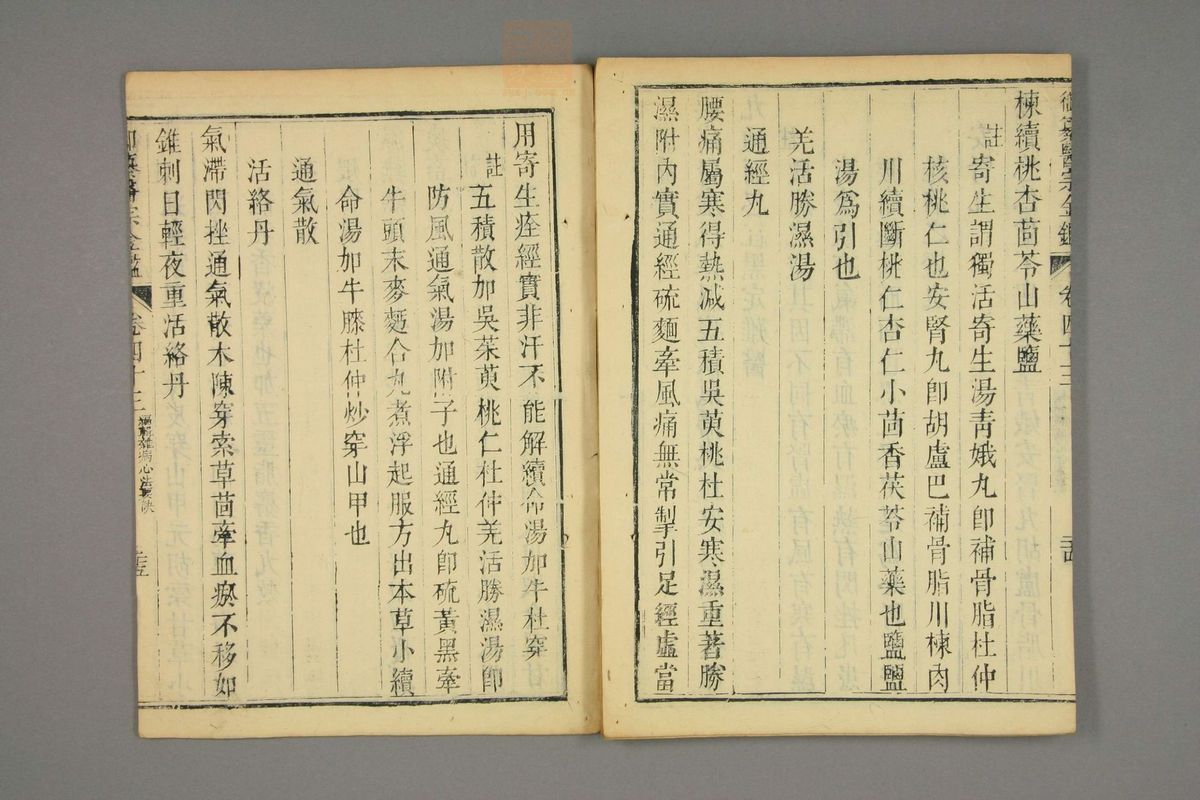 御纂醫宗金鑑 卷四十三 三十四
楝續桃杏茴苓山藥鹽
註寄生謂獨活寄生湯青娥丸卽補骨脂杜仲
核桃仁也安腎丸卽胡盧巴補骨脂川楝肉
川續斷桃仁杏仁小茴香茯苓山藥也鹽鹽
湯爲引也
羌活勝濕湯
通經丸
腰痛屬寒得熱減五積吳萸桃杜安寒濕重著勝
濕附內實通經硫麵牽風痛無常掣引足經虛當
用寄生痊經實非汗不能解續命湯加牛杜穿
註五積散加吳茱萸桃仁杜仲羌活勝濕湯卽
防風通氣湯加附子也通經丸卽硫黃黑牽
牛頭末麥麵合丸煮浮起服方出本草小續
命湯加牛膝杜仲炒穿山甲也
通氣散
活絡丹
氣滯閃挫通氣散木陳穿索草茴牽血瘀不移如
錐刺日輕夜重活絡丹
御纂醫宗金鑑 卷四十三 編輯雜病心法要訣 三十五